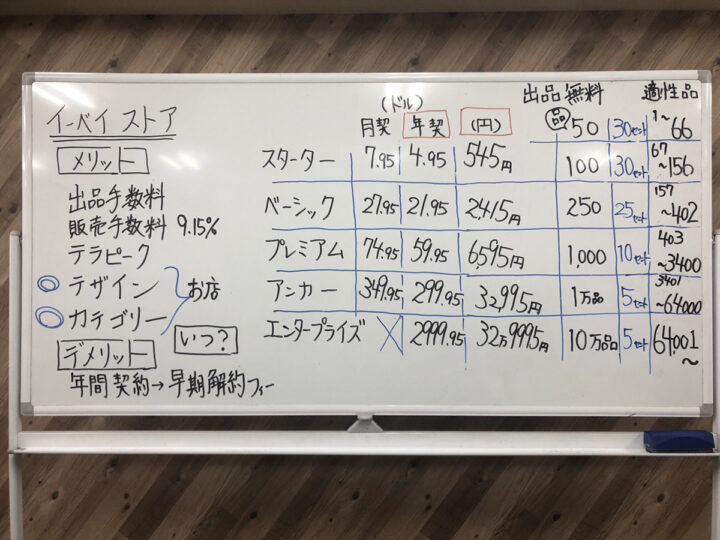 イーベイ ストア
メリット
出品手数料
販売手数料 9.15%
テラピーク
デザイン
カテゴリー
お店
デメリット
いつ?
年間契約→早期解約フィー
(ドル) 出品無料 適性品
月契 年契 (円) 品 50 30セント 1~66
スターター 7.95 4.95 545円 100 30セント 67~156
ベーシック 27.95 21.95 2,415円 250 25セント 157~402
プレミアム 74.95 59.95 6,595円 1,000 10セント 403~3400
アンカー 349.95 299.95 32,995円 1万品 5セント 3401~64000
エンタープライズ X 2999.95 32万9995円 10万品 5セント 64,001~